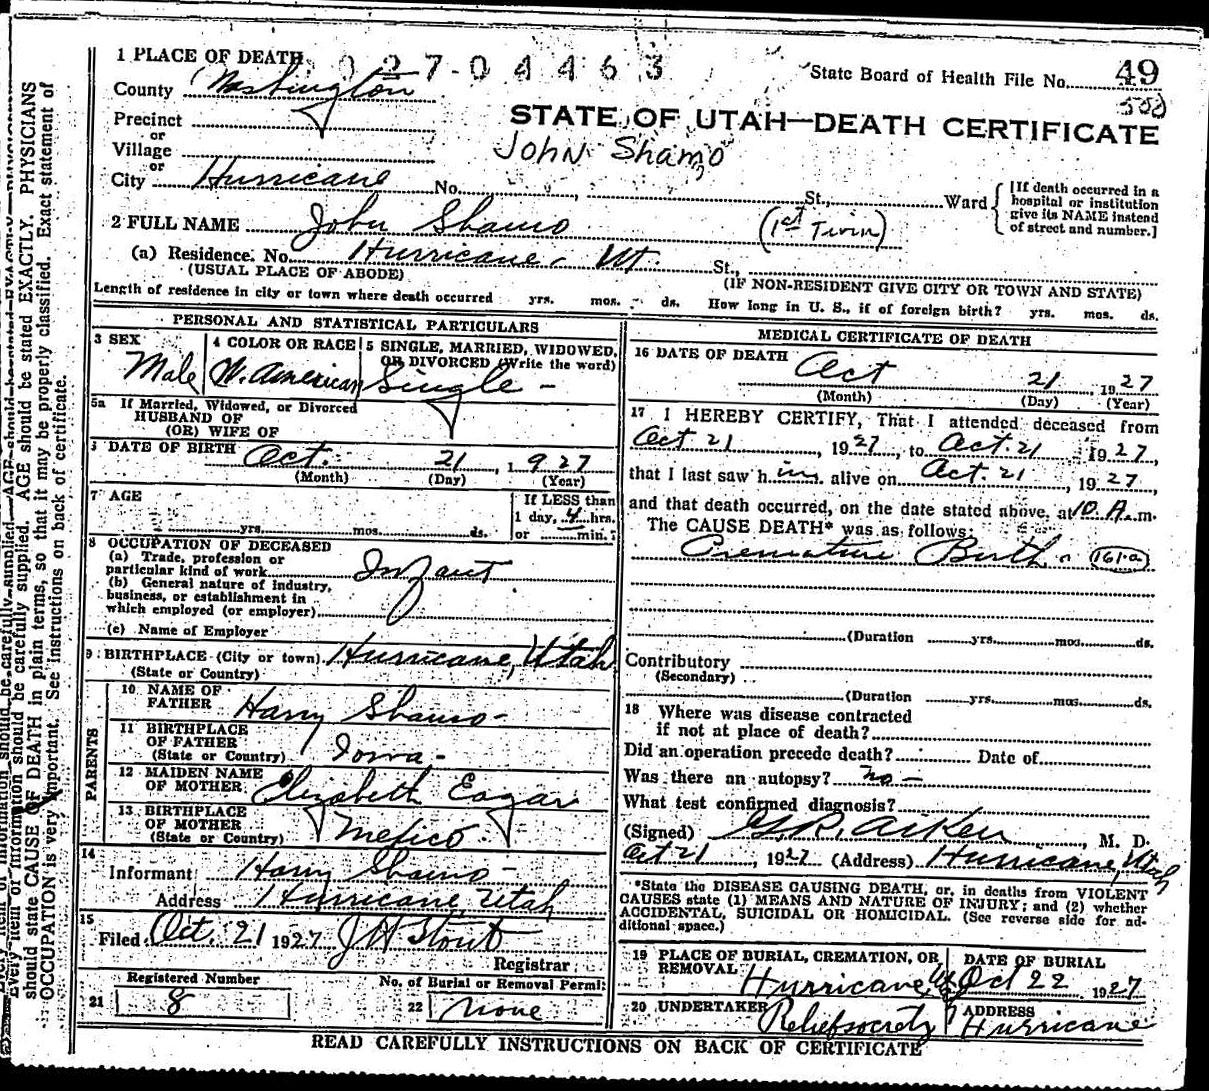 1 PLACE OF DEATH 02704463 State Board of Health File No. 49
County Washington 500
STATE OF UTAH—DEATH CERTIFICATE
Precinct
or
Village
John Shamo
or
City Hurricane No. St., Ward
[If death occurred in a
hospital or institution
give its NAME instead
of street and number.]
2 FULL NAME John Shamo (1st Twin)
(a) Residence. No. Hurricane Ut. St.,
(USUAL PLACE OF ABODE) (IF NON-RESIDENT GIVE CITY OR TOWN AND STATE)
Length of residence in city or town where death occurred yrs. mos. ds. How long in U. S., if of foreign birth? yrs. mos. ds.
PERSONAL AND STATISTICAL PARTICULARS
3 SEX 4 COLOR OR RACE 5 SINGLE, MARRIED, WIDOWED,
OR DIVORCED (Write the word)
Male W. American Single -
5a If Married, Widowed, or Divorced
HUSBAND OF
(OR) WIFE OF
6 DATE OF BIRTH Oct. 21, 1927
(Month) (Day) (Year)
7 AGE If LESS than
1 day, 4 hrs.
yrs. mos. ds. or min.?
8 OCCUPATION OF DECEASED
(a) Trade, profession or
particular kind of work Infant
(b) General nature of industry,
business, or establishment in
which employed (or employer)
(c) Name of Employer
9 BIRTHPLACE (City or town) Hurricane, Utah
(State or Country)
PARENTS
10 NAME OF
FATHER Harry Shamo -
11 BIRTHPLACE
OF FATHER
(State or Country) Iowa -
12 MAIDEN NAME
OF MOTHER Elizabeth Eagar
13 BIRTHPLACE
OF MOTHER
(State or Country) Mexico
14
Informant Harry Shamo -
Address Hurricane, Utah
15
Filed Oct. 21 1927 J H Stout
Registrar
Registered Number No. of Burial or Removal Permit
21 8 22 none
MEDICAL CERTIFICATE OF DEATH
16 DATE OF DEATH Oct 21 1927
(Month) (Day) (Year)
17 I HEREBY CERTIFY, That I attended deceased from
Oct 21, 1927, to Oct. 21 1927,
that I last saw him alive on Oct. 21, 1927,
and that death occurred, on the date stated above, at 10 A.m.
The CAUSE DEATH* was as follows:
Premature Birth (161-a)
(Duration yrs. mos. ds.
Contributory
(Secondary)
(Duration yrs. mos. ds.
18 Where was disease contracted
if not at place of death?
Did an operation precede death? Date of
Was there an autopsy? no -
What test confirmed diagnosis?
(Signed) G. R. Aiken, M. D.
Oct 21, 1927 (Address) Hurricane, Utah
*State the DISEASE CAUSING DEATH, or, in deaths from VIOLENT
CAUSES state (1) MEANS AND NATURE OF INJURY; and (2) whether
ACCIDENTAL, SUICIDAL OR HOMICIDAL. (See reverse side for ad-
ditional space.)
19 PLACE OF BURIAL, CREMATION, OR
REMOVAL DATE OF BURIAL
Hurricane, Ut Oct 22 1927
20 UNDERTAKER ADDRESS
Relief society Hurricane
READ CAREFULLY INSTRUCTIONS ON BACK OF CERTIFICATE
Every item of information should be carefully supplied. AGE should be stated EXACTLY. PHYSICIANS
should state CAUSE OF DEATH in plain terms, so that it may be properly classified. Exact statement of
OCCUPATION is very important. See instructions on back of certificate.